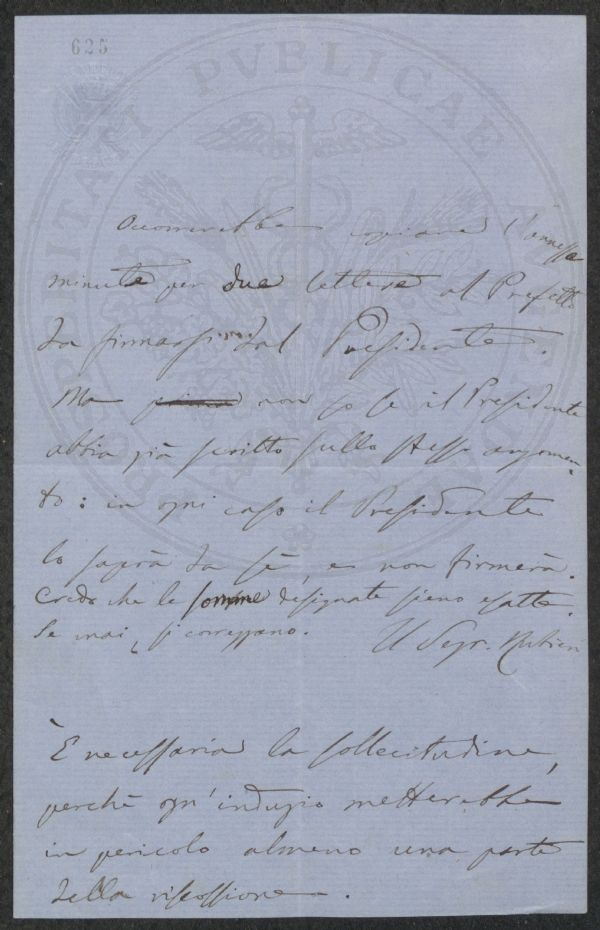 625
PROSPERITATI PVBLICAE AVGENDAE
Occorrerebbe copiare l'annessa
minuta per due lettere al Prefetto
da firmarsi dal Presidente.
Ma prima non so se il Presidente
abbia già scritto sullo stesso argomen-
to: in ogni caso il Presidente
lo saprà da sè, e non firmerà.
Credo che le somme designate sieno esatte.
Se mai, si correggano. Il Segr. Rubieri
È necessaria la sollecitudine,
perchè ogn'indugio metterebbe
in pericolo almeno una parte
della riscossione.